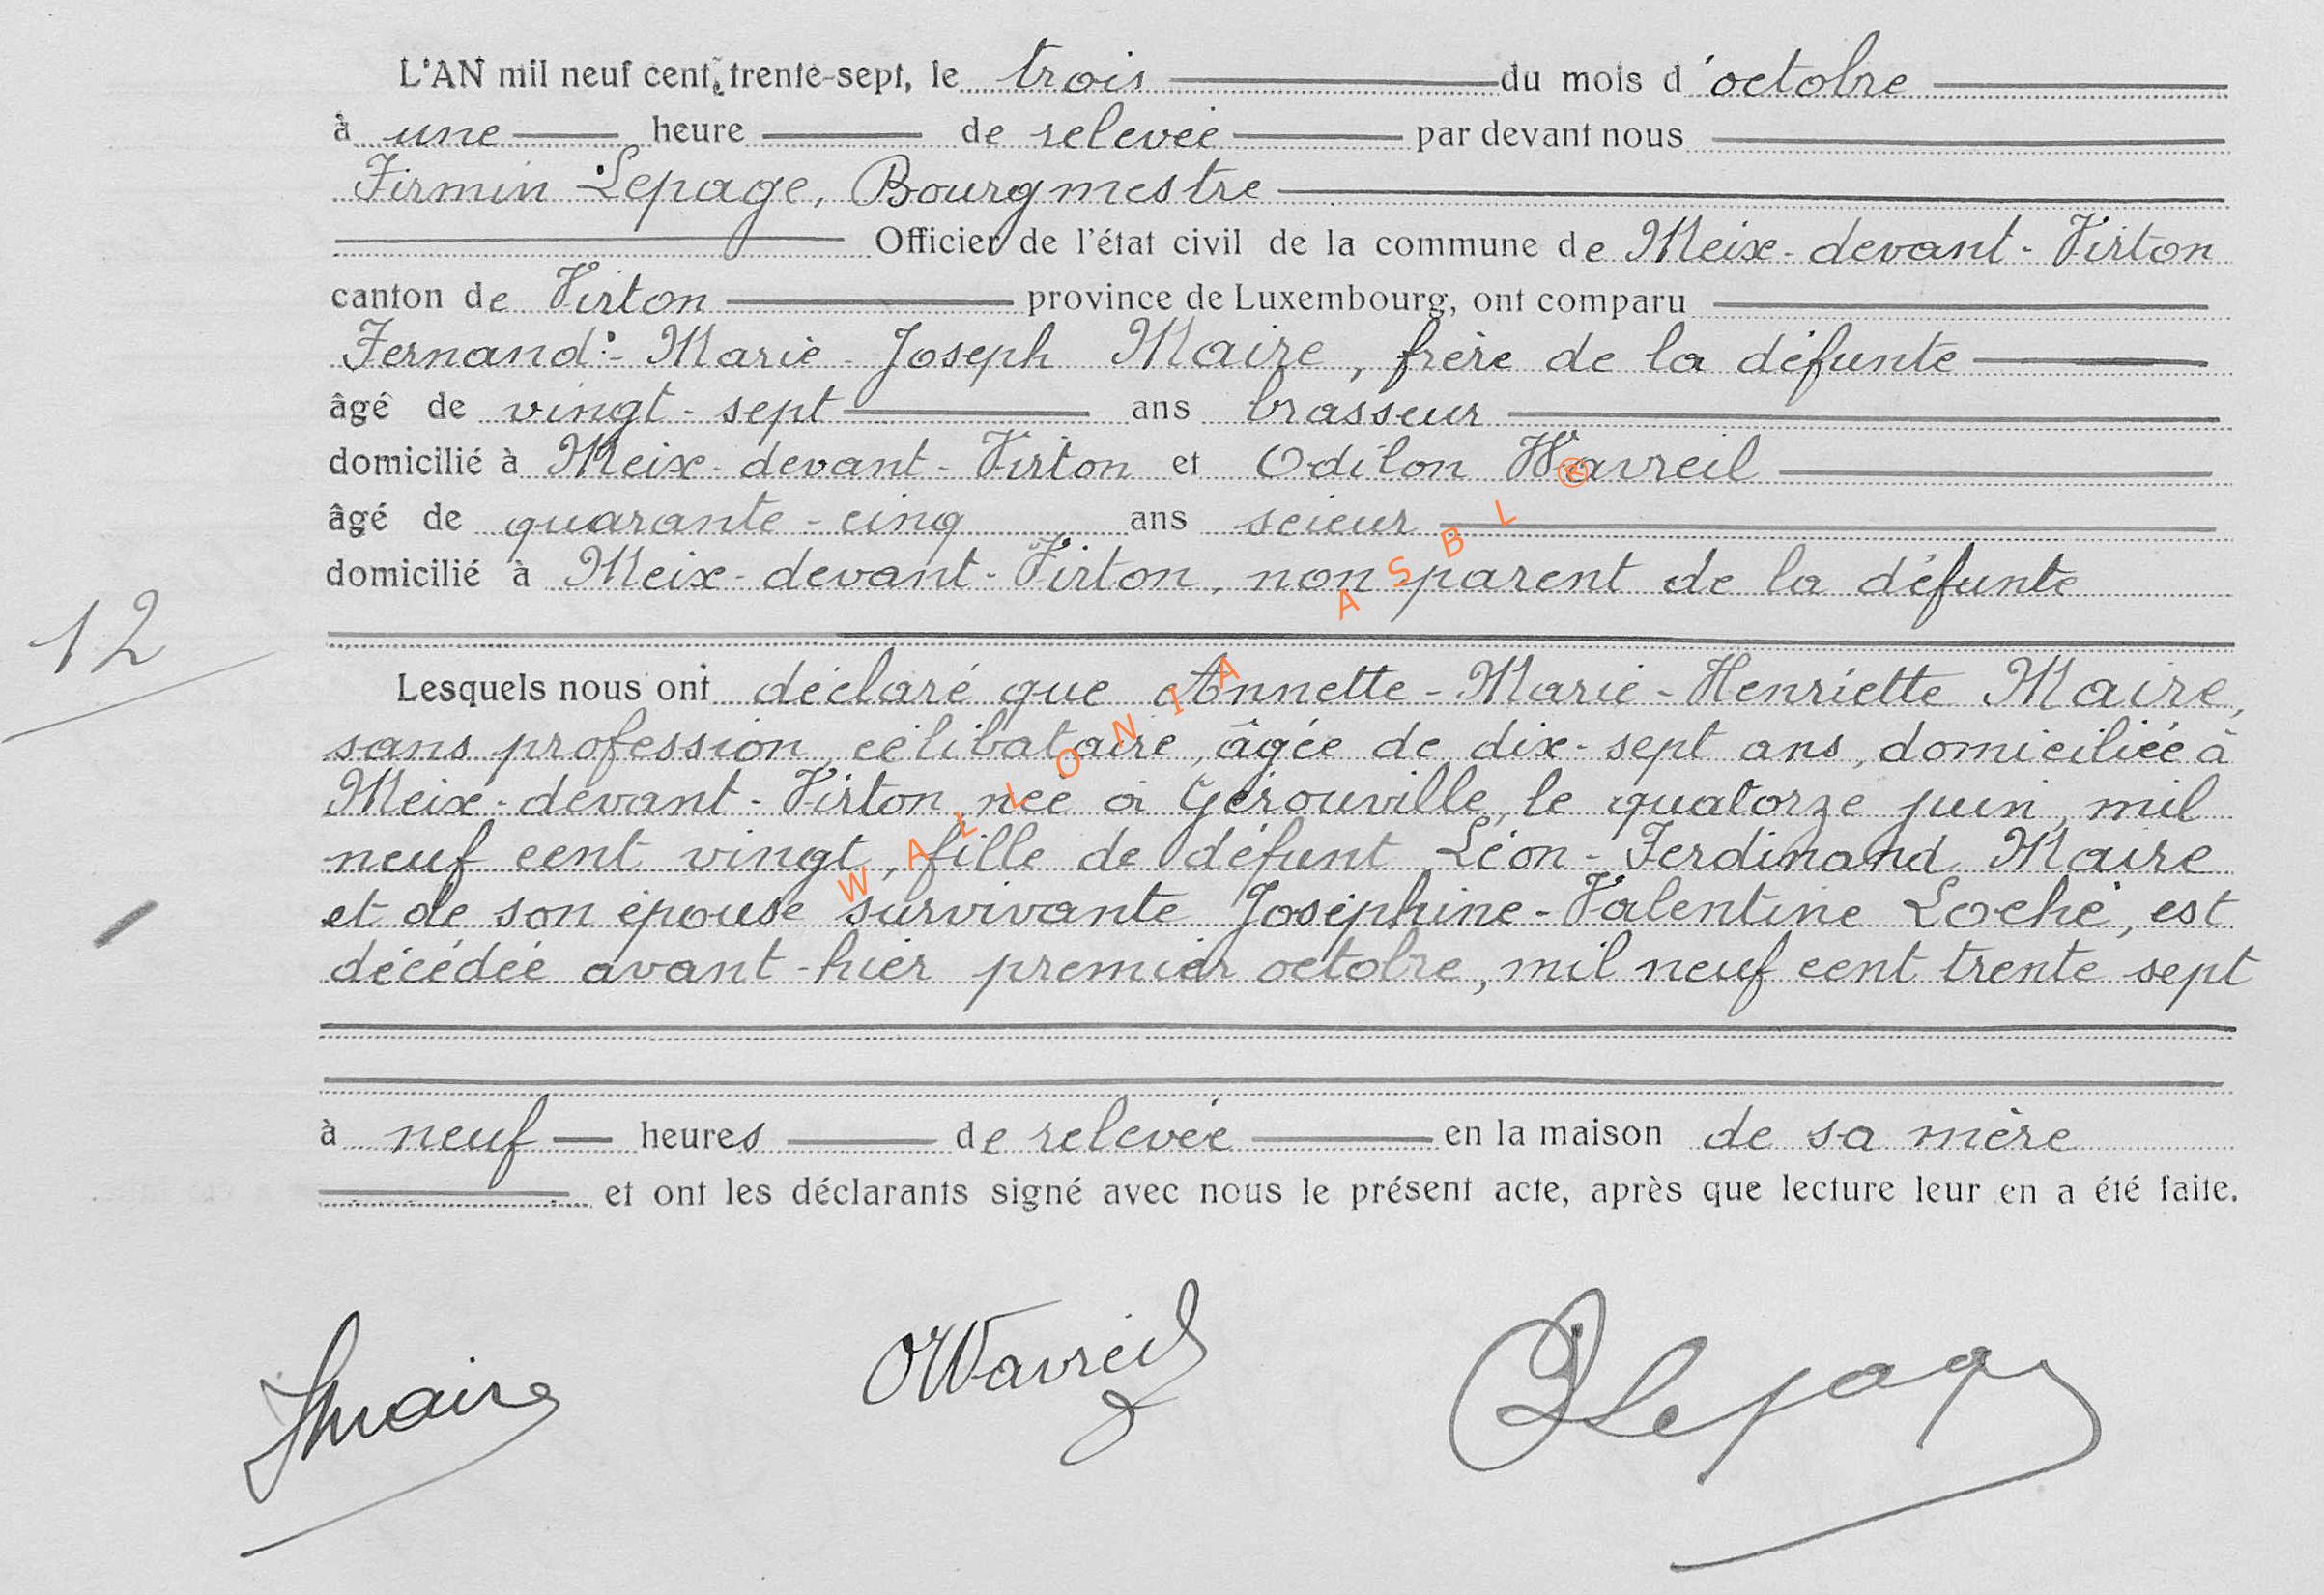 L'AN mil neuf cent trente-sept, le trois du mois d'octobre
à une heure de relevée par devant nous
Firmin Lepage, Bourgmestre
Officier de l'état civil de la commune de Meix-devant-Virton
canton de Virton province de Luxembourg, ont comparu
Fernand-Marie-Joseph Maire, frère de la défunte
âgé de vingt-sept ans brasseur
domicilié à Meix-devant-Virton et Odilon Wavreil
âgé de quarante-cinq ans scieur
domicilié à Meix-devant-Virton, non parent de la défunte
12
Lesquels nous ont déclaré que Annette-Marie-Henriette Maire,
sans profession, célibataire, âgée de dix-sept ans, domiciliée à
Meix-devant-Virton, née à Gérouville, le quatorze juin, mil
neuf cent vingt, fille de défunt Léon-Ferdinand Maire
et de son épouse survivante Joséphine-Valentine Loché, est
décédée avant-hier premier octobre, mil neuf cent trente sept
à neuf heures de relevée en la maison de sa mère
et ont les déclarants signé avec nous le présent acte, après que lecture leur en a été faite.
FMaire OWavreil Lepage
WALLONIA ASBL ®